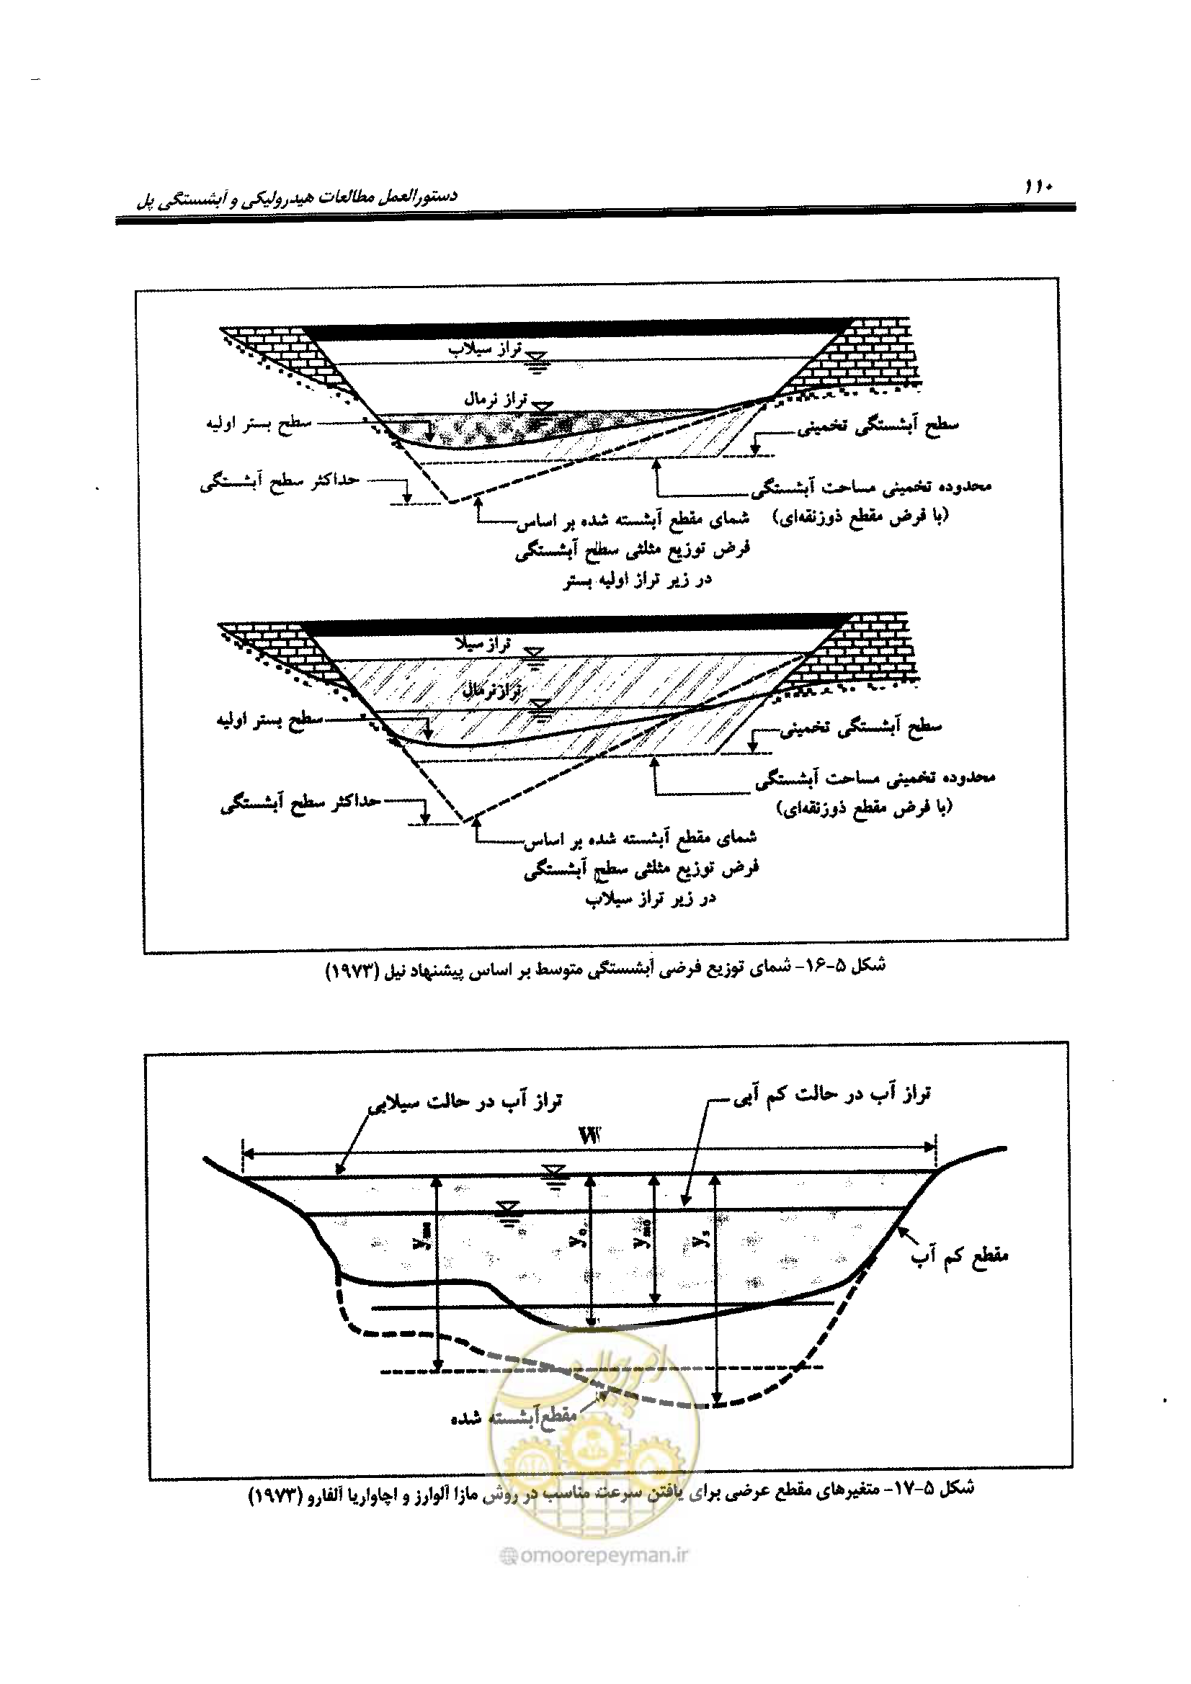 ۱۱۰
دستورالعمل مطالعات هیدرولیکی و آبشستگی پل
تراز سیلاب
تراز نرمال
سطح بستر اولیه
سطح آبشستگی تخمینی
حداکثر سطح آبشستگی
محدوده تخمینی مساحت آبشستگی
(با فرض مقطع ذوزنقه‌ای)
شمای مقطع آبشسته شده بر اساس
فرض توزیع مثلثی سطح آبشستگی
در زیر تراز اولیه بستر
تراز سیلا
تراز نرمال
سطح بستر اولیه
سطح آبشستگی تخمینی
محدوده تخمینی مساحت آبشستگی
(با فرض مقطع ذوزنقه‌ای)
حداکثر سطح آبشستگی
شمای مقطع آبشسته شده بر اساس
فرض توزیع مثلثی سطح آبشستگی
در زیر تراز سیلاب
شکل ۵-۱۶- شمای توزیع فرضی آبشستگی متوسط بر اساس پیشنهاد نیل (۱۹۷۳)
تراز آب در حالت کم آبی
تراز آب در حالت سیلابی
W
yms
yo
ymo
ys
مقطع کم آب
مقطع آبشسته شده
امور پیمان
شکل ۵-۱۷- متغیرهای مقطع عرضی برای یافتن سرعت مناسب در روش مازا آلوارز و اچاواریا آلفارو (۱۹۷۳)
@omoorepeyman.ir